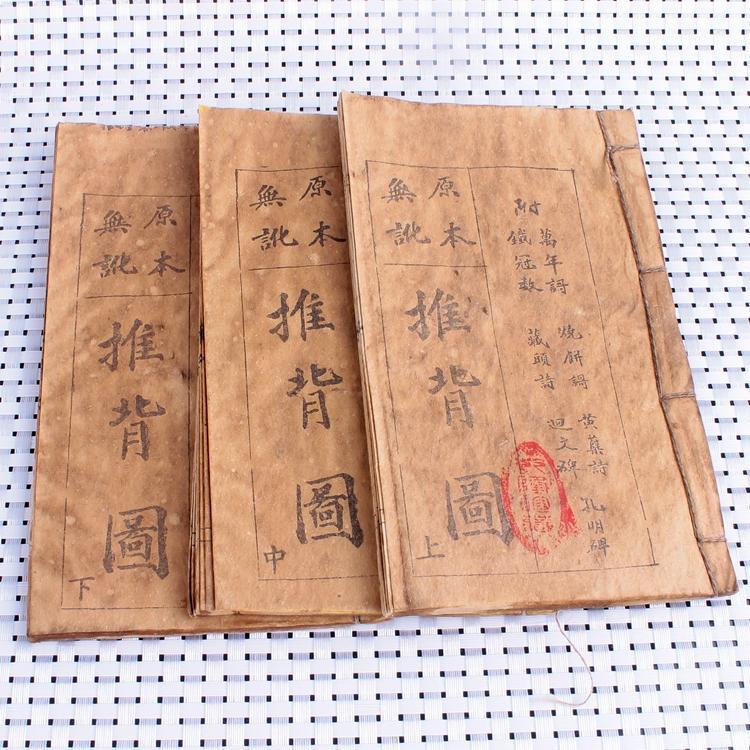 附
萬年謌
鐵冠數
燒餅謌
藏頭詩
黃蘗詩
迴文碑
孔明碑
原本
無訛
推背圖
上
原本
無訛
推背圖
中
原本
無訛
推背圖
下